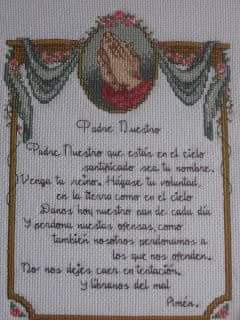 Padre Nuestro
Padre Nuestro que estás en el cielo
santificado sea tu nombre.
Venga tu reino. Hágase tu voluntad,
en la tierra como en el cielo
Danos hoy nuestro pan de cada día
Y perdona nuestras ofensas, como
también nosotros perdonamos a
los que nos ofenden.
No nos dejes caer en tentación,
y líbranos del mal
Amén.